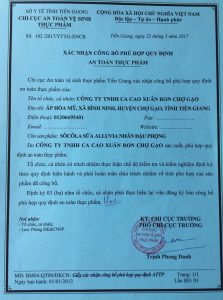 SỞ Y TẾ TỈNH TIỀN GIANG
CHI CỤC AN TOÀN VỆ SINH
THỰC PHẨM
CỘNG HÒA XÃ HỘI CHỦ NGHĨA VIỆT NAM
Độc lập - Tự do - Hạnh phúc
Tiền Giang, ngày
XÁC NHẬN CÔNG BỐ PHÙ HỢP QUY ĐỊNH
AN TOÀN THỰC PHẨM
Chi Cục An toàn vệ sinh thực phẩm Tiền Giang xác nhận công bố phù hợp quy định
an toàn thực phẩm của:
Tên tổ chức, cá nhân: CÔNG TY TNHH CA CAO XUÂN RON CHỢ GẠO
Địa chỉ: ẤP HÒA MỸ, XÃ BÌNH NINH, HUYỆN CHỢ GẠO, TỈNH TIỀN GIANG
Điện thoại: 01206695401 Fax:
Email:
Cho sản phẩm: SÔCÔLA SỮA ALLUVIA NHÂN ĐẬU PHỘNG
Do CÔNG TY TNHH CA CAO XUÂN RON CHỢ GẠO sản xuất, phù hợp quy
định an toàn thực phẩm.
Tổ chức, cá nhân có trách nhiệm thực hiện chế độ kiểm tra và kiểm nghiệm định kỳ
theo quy định hiện hành và phải hoàn toàn chịu trách nhiệm về tính phù hợp của sản
phẩm đã công bố.
Định kỳ 03 (ba) năm tổ chức, cá nhân phải thực hiện lại việc đăng ký bản công bố
phù hợp quy định an toàn thực phẩm.
Nơi nhận:
- Tổ chức, cá nhân;
KT. CHI CỤC TRƯỞNG
PHÓ CHI CỤC TRƯỞNG
Trịnh Phong Danh
Giấy xác nhận công bố phù hợp quy định ATTP
Trang: 1/1
Ngày ban hành: 01/01/2013
Lần BH: 01